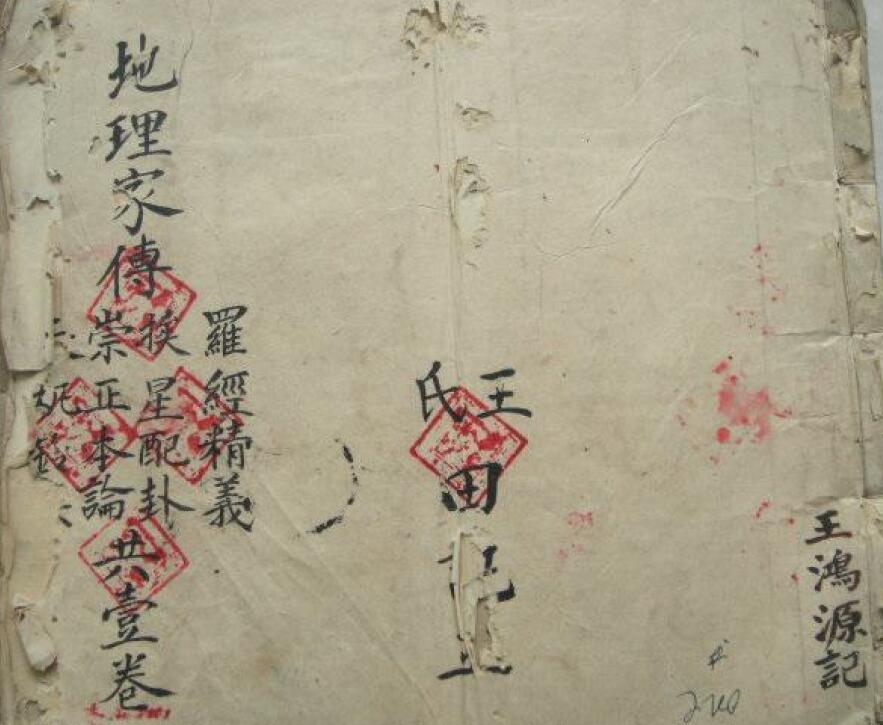 王鴻源記
王氏
田記
羅經精義
挨星配卦
崇正本論
地理家傳
共壹卷